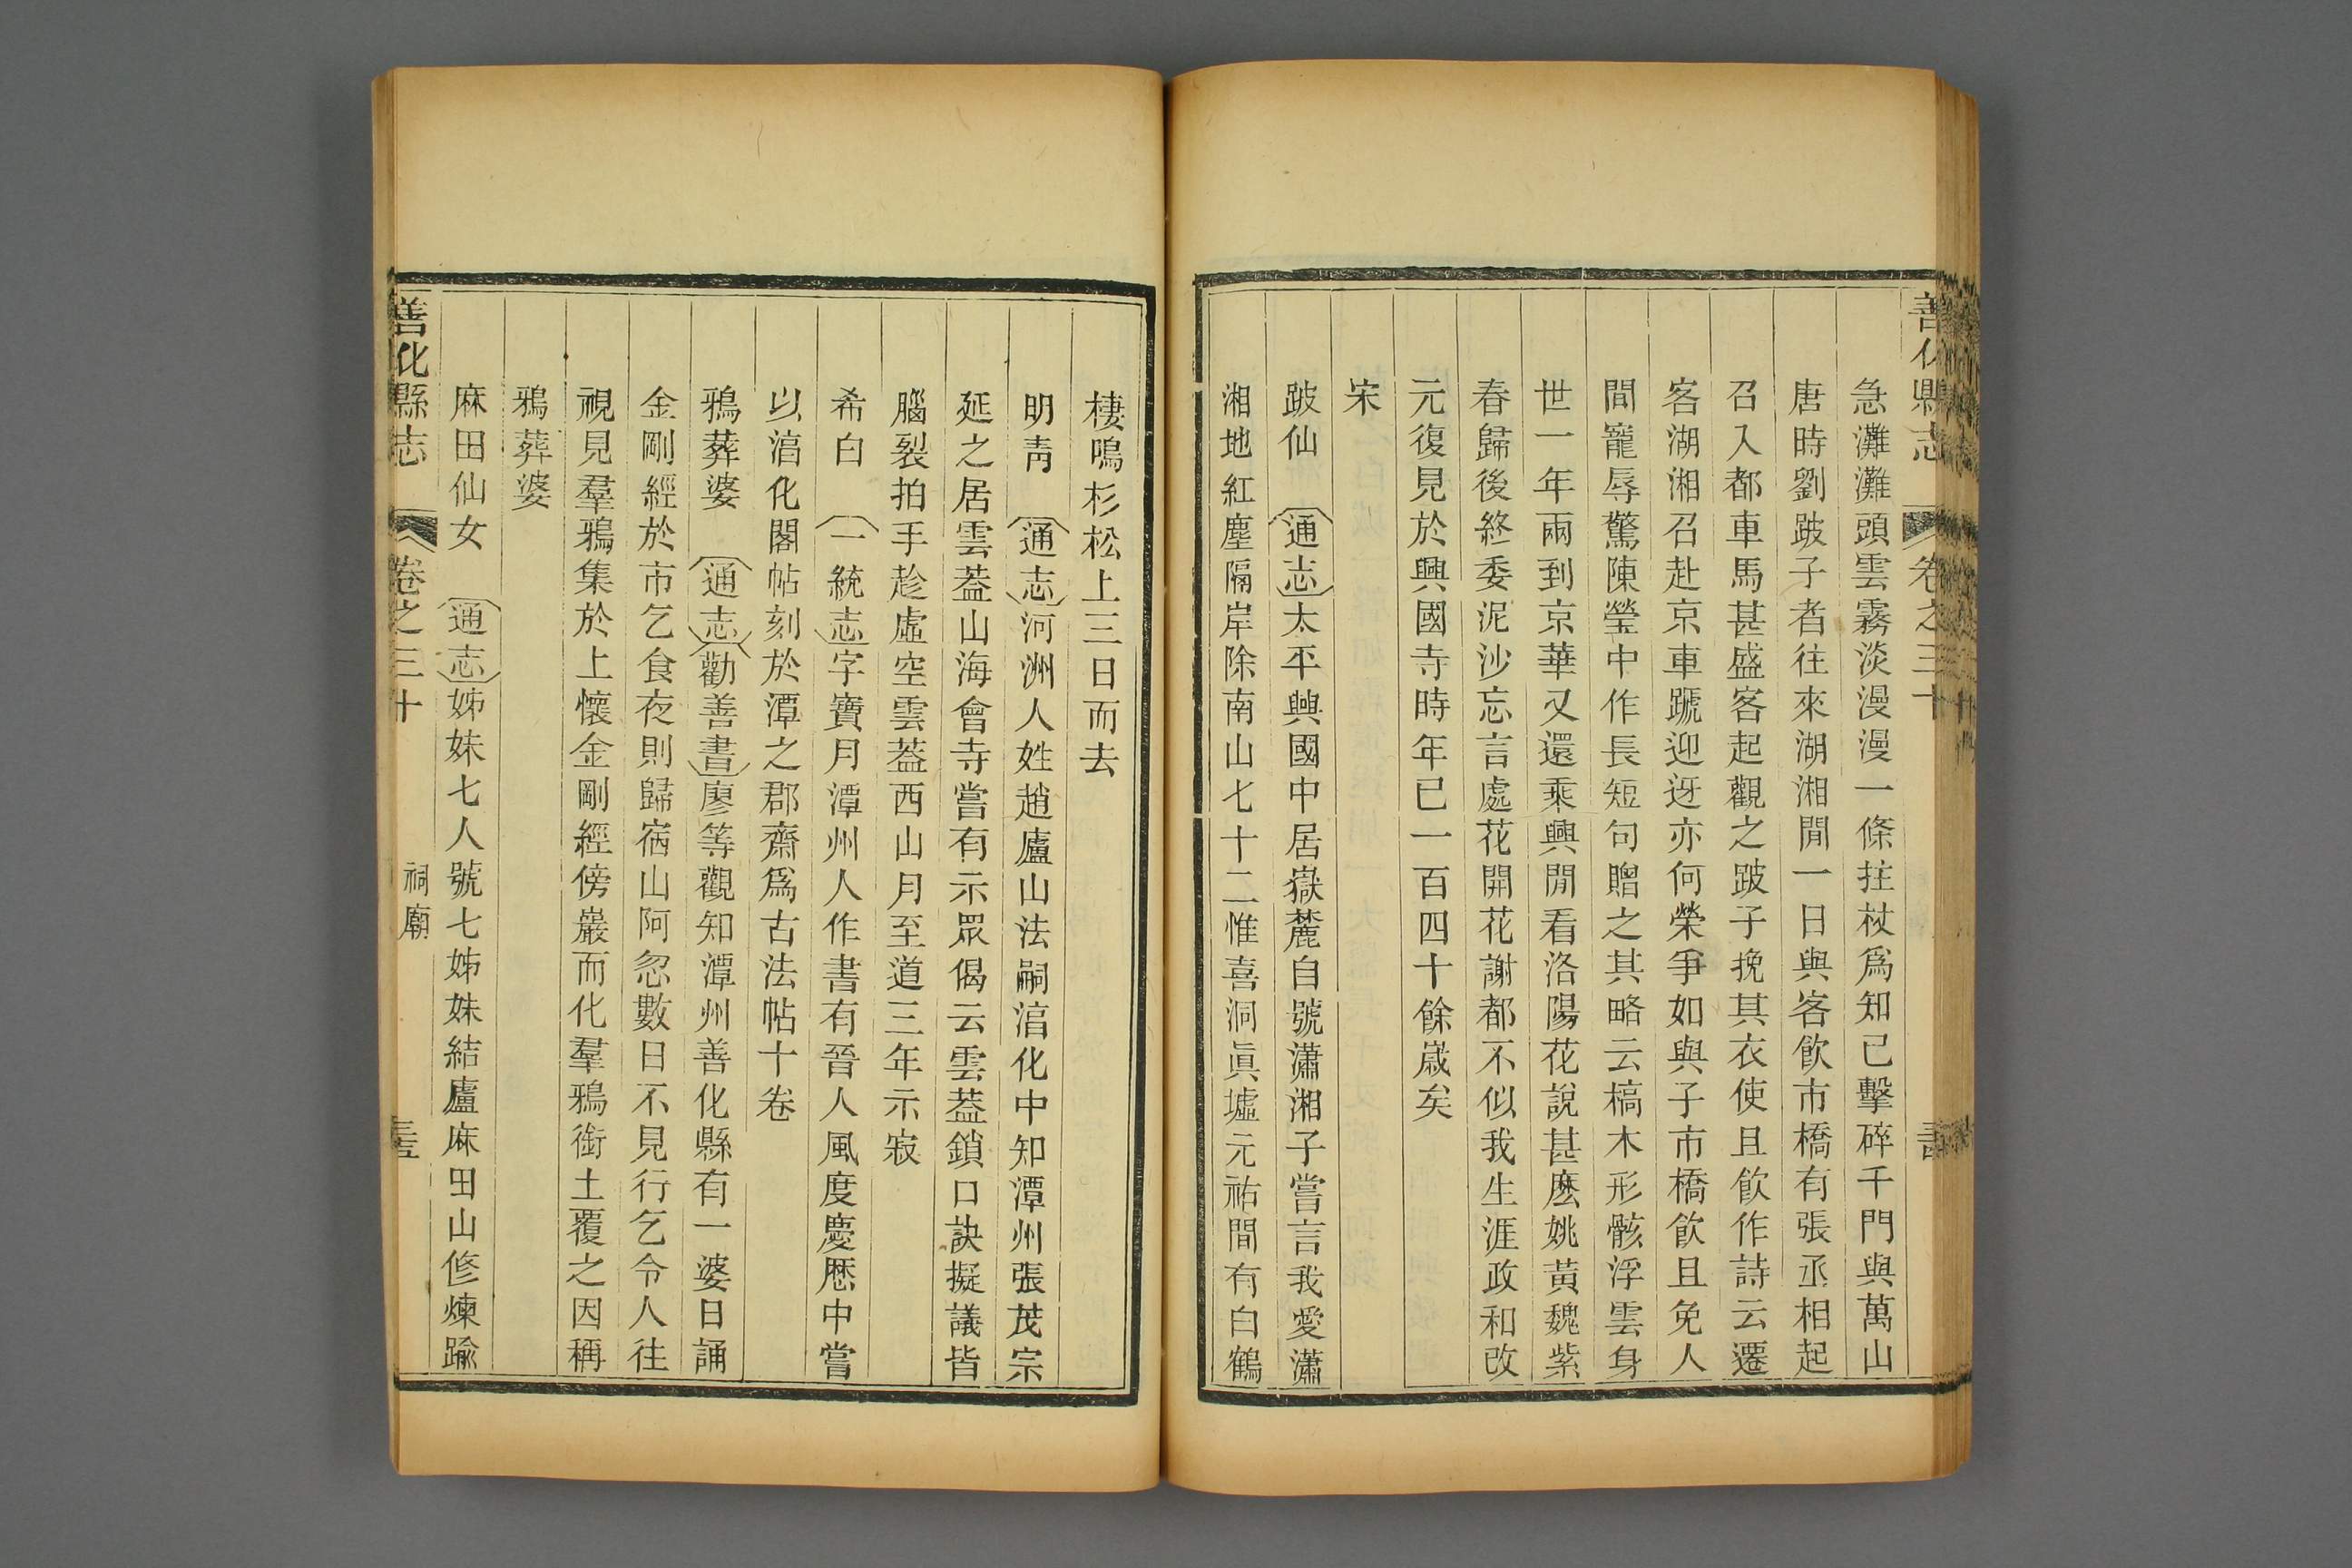 善化縣志 卷之三十
急灘灘頭雲霧淡漫漫一條拄杖爲知已擊碎千門與萬山
唐時劉跛子者往來湖湘間一日與客飲市橋有張丞相起
召入都車馬甚盛客起觀之跛子挽其衣使且飲作詩云遷
客湖湘召赴京車蹏迎迓亦何榮爭如與子市橋飲且免人
間寵辱驚陳瑩中作長短句贈之其略云槁木形骸浮雲身
世一年兩到京華又還乘興閒看洛陽花說甚麽姚黃魏紫
春歸後終委泥沙忘言處花開花謝都不似我生涯政和改
元復見於興國寺時年已一百四十餘歲矣
宋
跛仙 通志太平興國中居嶽麓自號瀟湘子嘗言我愛瀟
湘地紅塵隔岸除南山七十二惟喜洞眞墟元祐間有白鶴
棲鳴杉松上三日而去
明靑 通志河洲人姓趙廬山法嗣湻化中知潭州張茂宗
延之居雲葢山海會寺嘗有示眾偈云雲葢鎖口訣擬議皆
腦裂拍手趁虛空雲葢西山月至道三年示寂
希白 一統志字寶月潭州人作書有晉人風度慶厯中嘗
以湻化閣帖刻於潭之郡齋爲古法帖十卷
鴉葬婆 通志勸善書廖等觀知潭州善化縣有一婆日誦
金剛經於市乞食夜則歸宿山阿忽數日不見行乞令人往
視見羣鴉集於上懷金剛經傍巖而化羣鴉銜土覆之因稱
鴉葬婆
麻田仙女 通志姊妹七人號七姊妹結廬麻田山修煉踰
善化縣志 卷之三十 祠廟